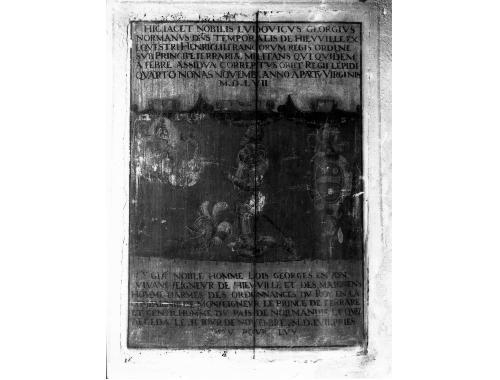 HIC IACET NOBILIS LUDOVICUS GEORGIUS
NORMANUS DÑS TEMPORALIS DE HIEVVILLE EX
EQVESTRI HENRICI II FRANCORUM REGIS ORDINE
SUB PRINCIPE FERRARIÆ MILITANS QVI QVIDEM
A FEBRE ASSIDVA CORREPTVS OBIIT REGII LEPIDI
QVARTO NONAS NOVEMB. ANNO A PARTV VIRGINIS
M.D.LVII
CY GIST NOBLE HOMME LOIS GEORGES EN SON
VIVANT SEIGNEUR DE HIEVVILLE ET DES
HOMME D'ARMES DES ORDONNANCES DU ROY EN LA
DE MONSEIGNEUR LE PRINCE DE FERRARE
ET GENTILHOMME DU PAIS DE NORMANDIE
DECEDA LE JOUR DE NOVEMBRE M.D.LVII PRIES
POUR LUY